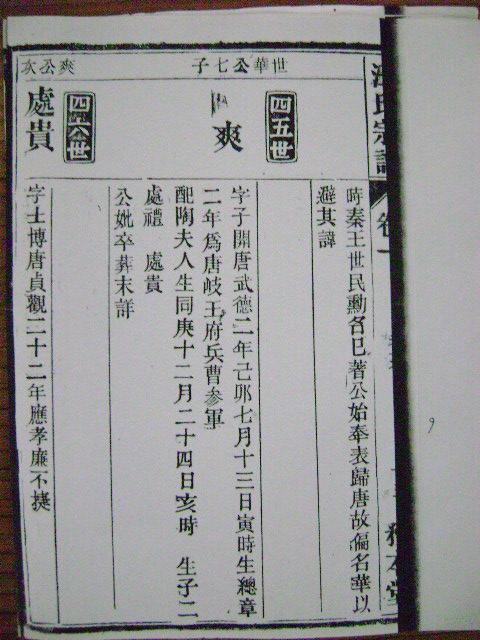 汪氏宗譜
卷一
時秦王世民勳名已著公始奉表歸唐故偏名華以
避其諱
世華公七子
四五世
爽
字子開唐武德二年己卯七月十三日寅時生總章
二年為唐岐王府兵曹參軍
配陶夫人生同庚十二月二十四日亥時 生子二
處禮 處貴
公妣卒葬未詳
爽公次
四六世
處貴
字士博唐貞觀二十二年應孝廉不㨗